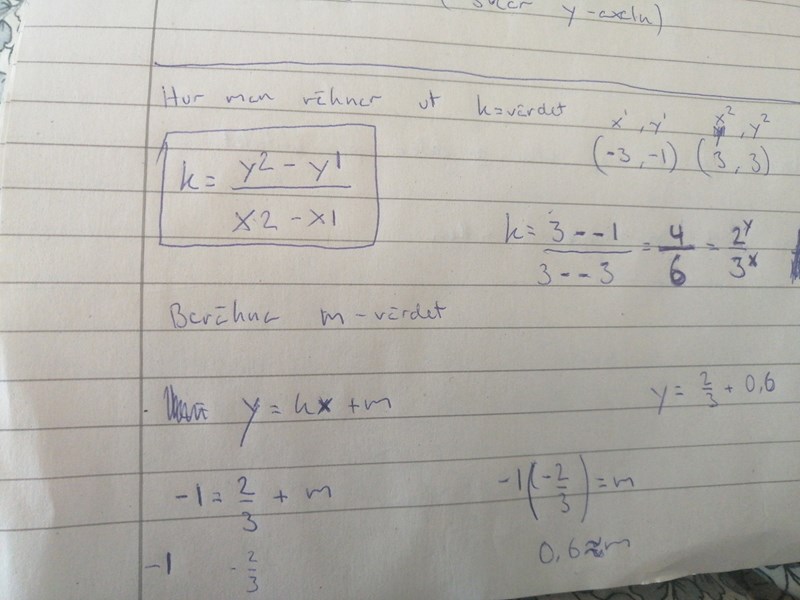 y-axeln)
Hur man räknar ut k=värdet
x¹, y¹ x², y²
(-3, -1) (3, 3)
k = y2 - y1 / x2 - x1
k = 3 - -1 / 3 - -3 = 4/6 = 2y/3x
Beräkna m-värdet
y = kx + m
y = 2/3 + 0,6
-1 = 2/3 + m
-1(-2/3) = m
-1 -2/3
0,6 ≈ m